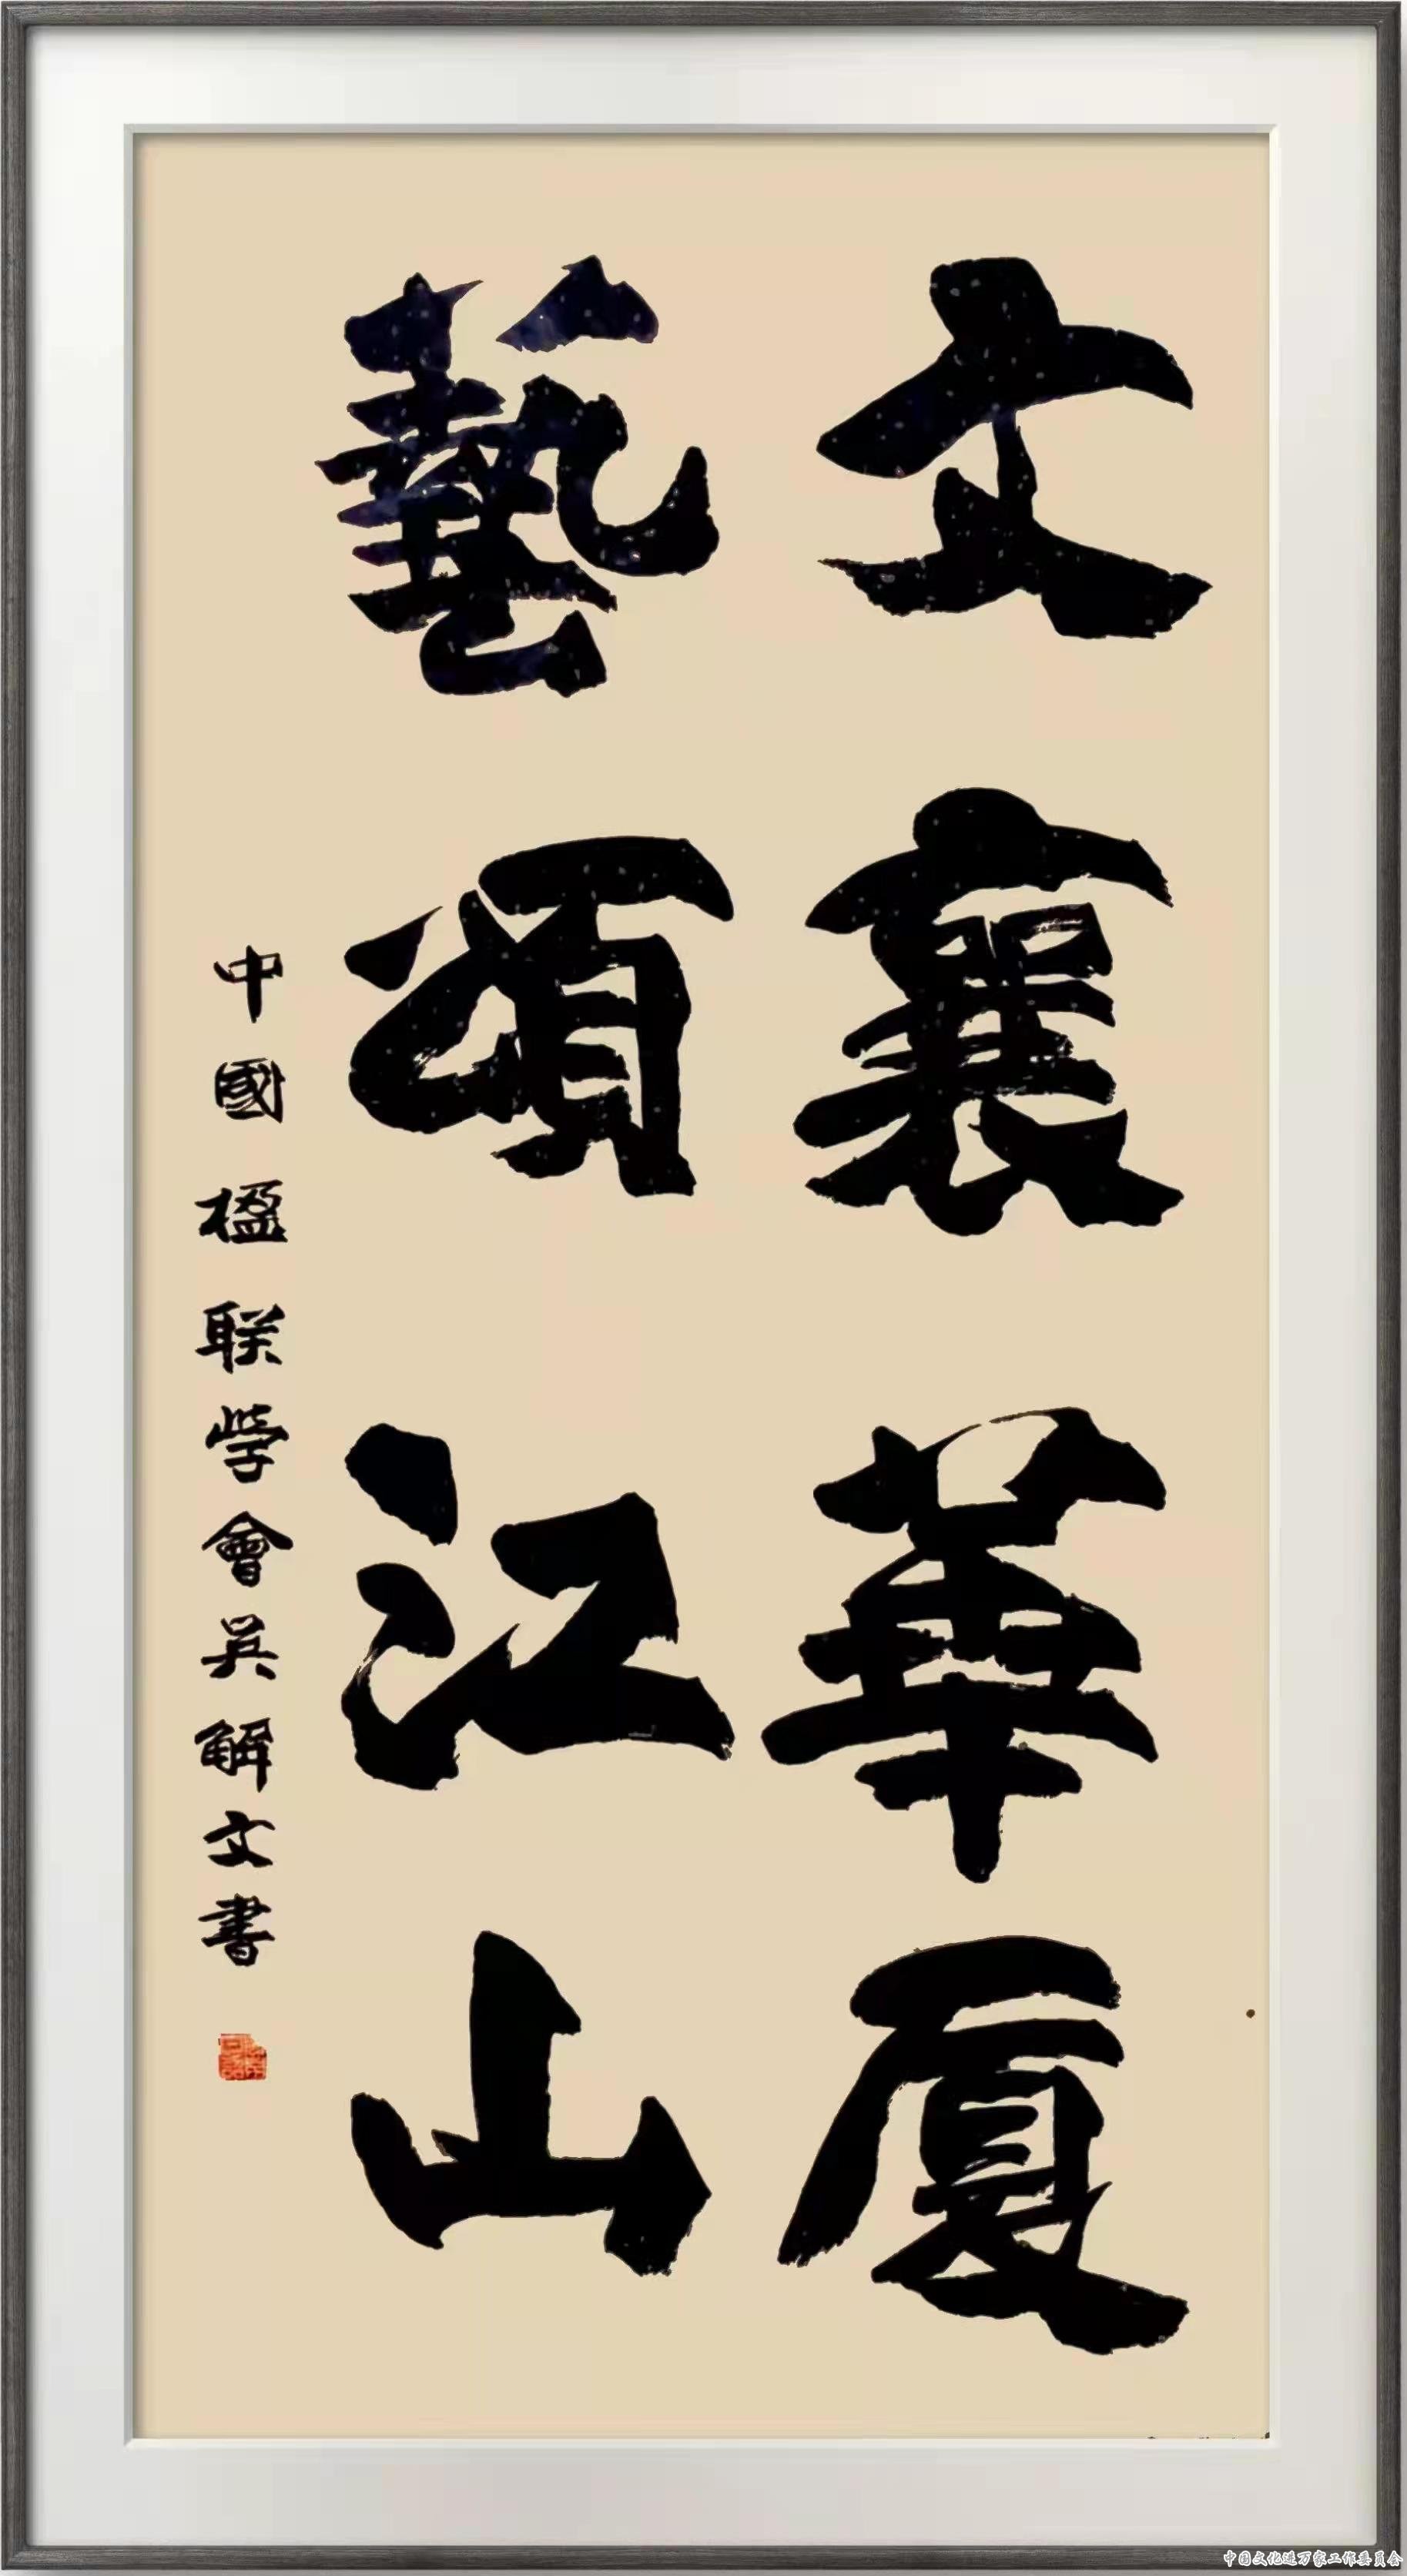 文襄華廈
藝頌江山
中國楹联學會吴解文書
中国文化进万家工作委员会